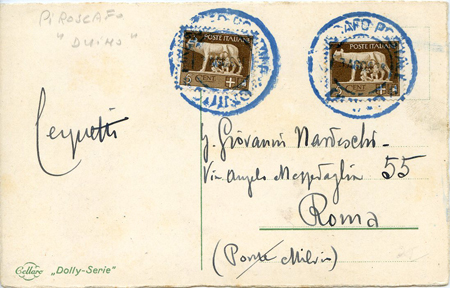 PIROSCAFO
"DUINO"
POSTE ITALIANE
5 CENT
POSTE ITALIANE
5 CENT
Cerquetti
g. Giovanni Nardeschi-
Via Angelo Messedaglia 55
Roma
(Ponte Milvio)
Cellaro "Dolly-Serie"